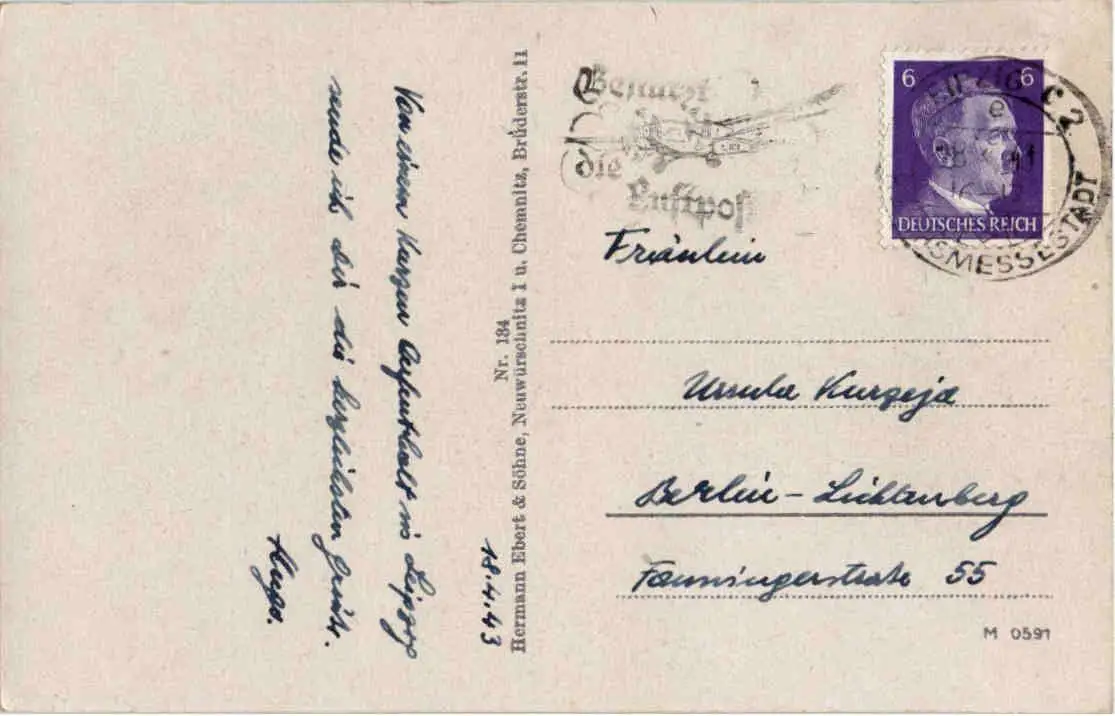 18.4.43
Von einem kurzen Aufenthalt in Leipzig
sende ich Dir die herzlichsten Grüße.
Hugo.
Nr. 134
Hermann Ebert & Söhne, Neuwürschnitz I u. Chemnitz, Brüderstr. 11
Benutzt
die
Luftpost
6 6
DEUTSCHES REICH
C 2
e
SMESSESTADT
Fräulein
Ursula Kurzeja
Berlin-Lichtenberg
Fanningerstraße 55
M 0591